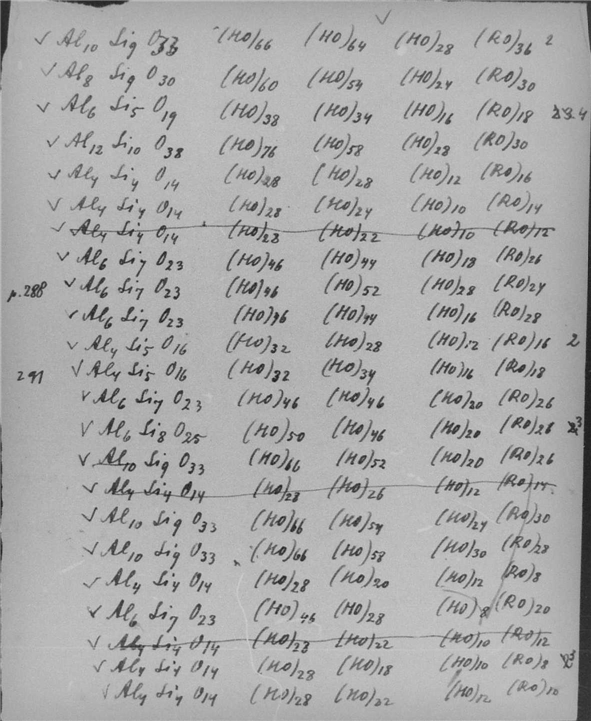 ✓
✓ Al10 Si9 O33 (HO)66 (HO)64 (HO)28 (RO)36 2
✓ Al8 Si9 O30 (HO)60 (HO)54 (HO)24 (RO)30
✓ Al6 Si5 O19 (HO)38 (HO)34 (HO)16 (RO)18 4
✓ Al12 Si10 O38 (HO)76 (HO)58 (HO)28 (RO)30
✓ Al4 Si4 O14 (HO)28 (HO)28 (HO)12 (RO)16
✓ Al4 Si4 O14 (HO)28 (HO)24 (HO)10 (RO)14
✓ Al4 Si4 O14 (HO)28 (HO)22 (HO)10 (RO)12
✓ Al6 Si7 O23 (HO)46 (HO)44 (HO)18 (RO)26
p.288 ✓ Al6 Si7 O23 (HO)46 (HO)52 (HO)28 (RO)24
✓ Al6 Si7 O23 (HO)46 (HO)44 (HO)16 (RO)28
✓ Al4 Si5 O16 (HO)32 (HO)28 (HO)12 (RO)16 2
291 ✓ Al4 Si5 O16 (HO)32 (HO)34 (HO)16 (RO)18
✓ Al6 Si7 O23 (HO)46 (HO)46 (HO)20 (RO)26
✓ Al6 Si8 O25 (HO)50 (HO)46 (HO)20 (RO)26 3
✓ Al10 Si9 O33 (HO)66 (HO)52 (HO)20 (RO)26
✓ Al4 Si4 O14 (HO)28 (HO)26 (HO)12 (RO)14
✓ Al10 Si9 O33 (HO)66 (HO)54 (HO)24 (RO)30
✓ Al10 Si9 O33 (HO)66 (HO)58 (HO)30 (RO)28
✓ Al4 Si4 O14 (HO)28 (HO)20 (HO)12 (RO)8
✓ Al6 Si7 O23 (HO)46 (HO)28 (HO)8 (RO)20
✓ Al4 Si4 O14 (HO)28 (HO)22 (HO)10 (RO)12
✓ Al4 Si4 O14 (HO)28 (HO)18 (HO)10 (RO)8 3
✓ Al4 Si4 O14 (HO)28 (HO)22 (HO)12 (RO)10